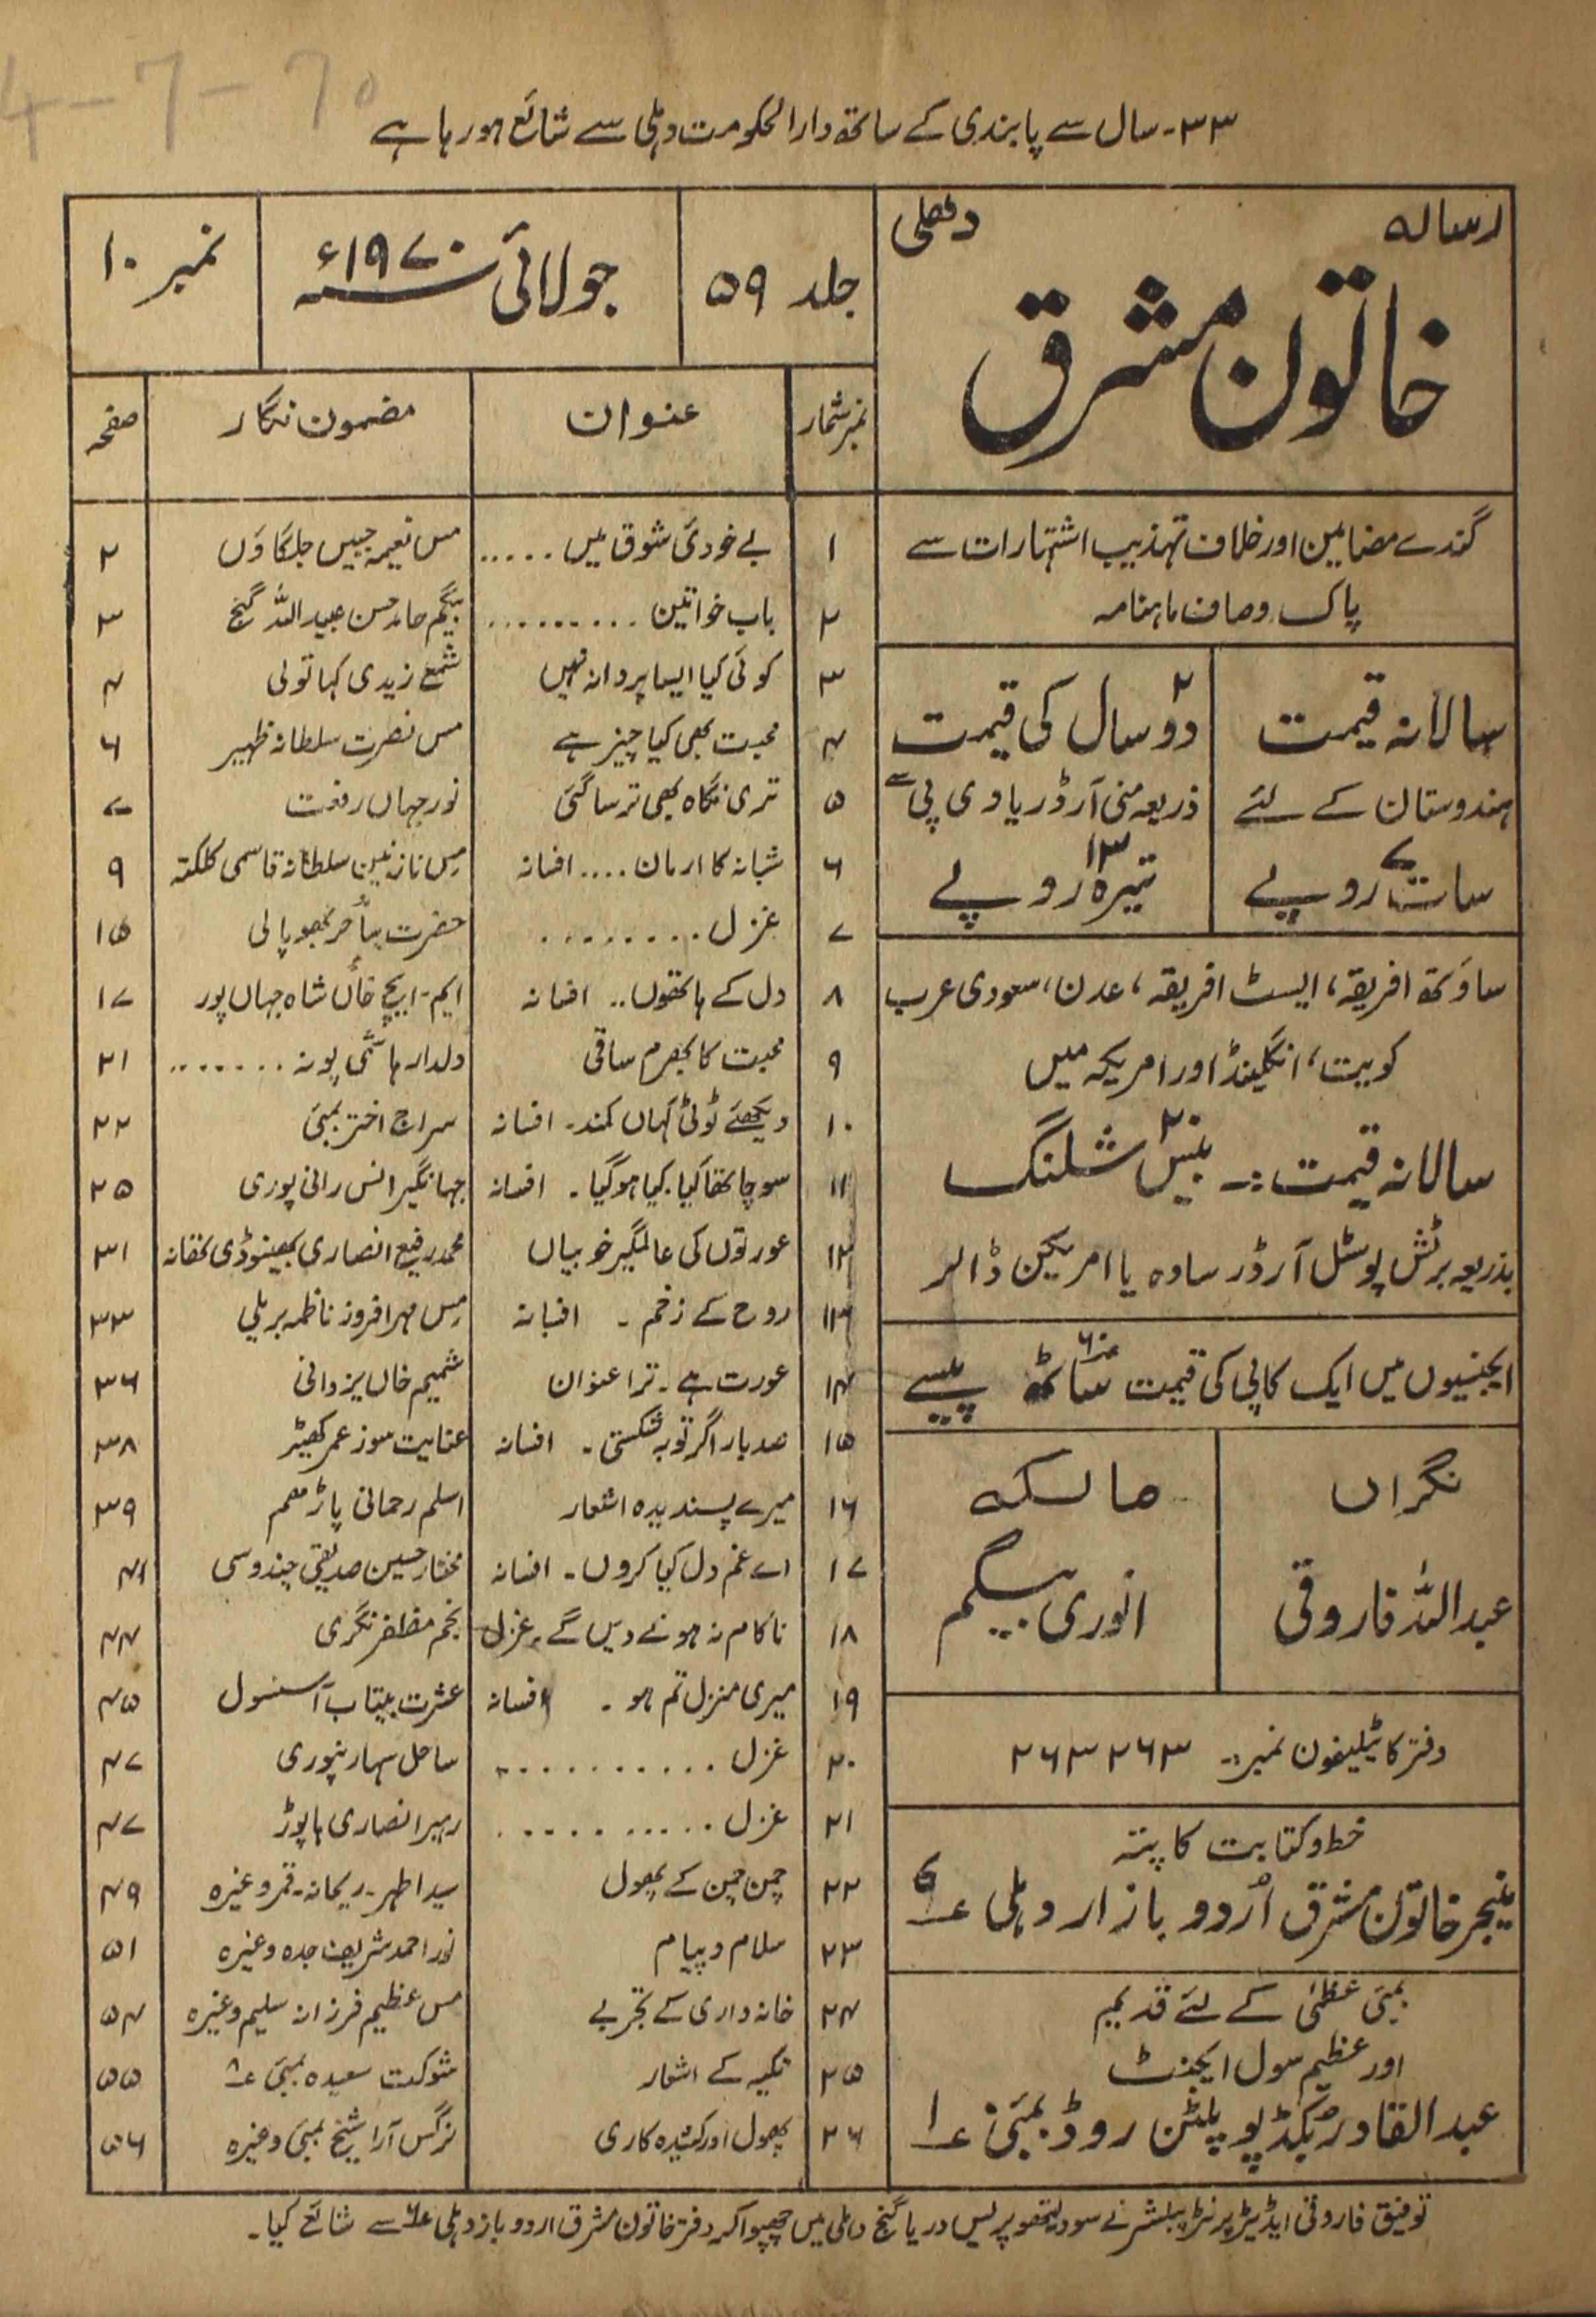 4-7-70
۳۳-سال سے پابندی کے ساتھ دارالحکومت دہلی سے شائع ہو رہا ہے
رسالہ دھلی
خاتون مشرق
جلد ۵۹
جولائی ۱۹۷۰ء
نمبر ۱۰
گندے مضامین اور خلاف تہذیب اشتہارات سے
پاک و صاف ماہنامہ
سالانہ قیمت
ہندوستان کے لئے
سات ۷ روپے
دو ۲ سال کی قیمت
ذریعہ منی آرڈر یا وی پی سے
تیرہ ۱۳ روپے
ساؤتھ افریقہ، ایسٹ افریقہ، عدن، سعودی عرب
کویت، انگلینڈ اور امریکہ میں
سالانہ قیمت :- بیس ۲۰ شلنگ
بذریعہ برٹش پوسٹل آرڈر سادہ یا امریکین ڈالر
ایجنسیوں میں ایک کاپی کی قیمت ساٹھ ۶۰ پیسے
نگراں
عبداللہ فاروقی
مالکہ
انوری بیگم
دفتر کا ٹیلیفون نمبر:- ۲۶۳۲۶۳
خط و کتابت کا پتہ
منیجر خاتون مشرق اُردو بازار دہلی ۶
بمبئی عظمیٰ کے لئے قدیم
اور عظیم سول ایجنٹ
عبدالقادر بکڈپو پلٹن روڈ بمبئی ۱
نمبر شمار عنوان مضمون نگار صفحہ
۱ بے خودئ شوق میں ..... مس نعیمہ جبیں جلگاؤں ۲
۲ باب خواتین ......... بیگم حامد حسن عبیداللہ گنج ۳
۳ کوئی کیا ایسا پروانہ نہیں شمع زیدی کہاتولی ۴
۴ محبت بھی کیا چیز ہے مس نصرت سلطانہ ظہیر ۶
۵ تری نگاہ بھی ترسا گئی نور جہاں رفعت ۷
۶ شبانہ کا ارمان .... افسانہ مس نازنین سلطانہ قاسمی کلکتہ ۹
۷ غزل ........ حضرت ساحر بھوپالی ۱۵
۸ دل کے ہاتھوں .. افسانہ ایم-ایچ خاں شاہ جہاں پور ۱۷
۹ محبت کا بھرم ساقی دلدار ہاشمی پونہ ....... ۲۱
۱۰ دیکھئے ٹوٹی کہاں کمند- افسانہ سراج اختر بمبئی ۲۲
۱۱ سوچا تھا کیا، کیا ہو گیا - افسانہ جہانگیر انس رانی پوری ۲۵
۱۲ عورتوں کی عالمگیر خوبیاں محمد رفیع انصاری بھینوڈی تھانہ ۳۱
۱۳ روح کے زخم - افسانہ مس مہر افروز ناظمہ بریلی ۳۳
۱۴ عورت ہے - ترا عنوان شمیم خاں یزدانی ۳۶
۱۵ صد بار اگر توبہ شکستی - افسانہ عنایت سوز عمر کھیڑ ۳۸
۱۶ میرے پسندیدہ اشعار اسلم رحمانی پاڑ مم ۳۹
۱۷ اے غم دل کیا کروں - افسانہ مختار حسین صدیقی چندوسی ۴۱
۱۸ ناکام نہ ہونے دیں گے - غزل نجم مظفر نگری ۴۴
۱۹ میری منزل تم ہو - افسانہ عشرت بیتاب آسنسول ۴۵
۲۰ غزل .......... ساحل سہارنپوری ۴۷
۲۱ غزل .......... رہبر انصاری ہاپوڑ ۴۷
۲۲ چمن چمن کے پھول سید اطہر-ریحانہ-قمر وغیرہ ۴۹
۲۳ سلام و پیام نور احمد شریف جدہ وغیرہ ۵۱
۲۴ خانہ داری کے تجربے مس عظیم فرزانہ سلیم وغیرہ ۵۴
۲۵ تکیہ کے اشعار شوکت سعیدہ بمبئی ۸ ۵۵
۲۶ پھول اور کشیدہ کاری نرگس آرا شیخ بمبئی وغیرہ ۵۶
توفیق فاروقی ایڈیٹر پرنٹر پبلشر نے سود لیتھو پریس دریا گنج دہلی میں چھپوا کر دفتر خاتون مشرق اردو بازار دہلی ۶ سے شائع کیا۔